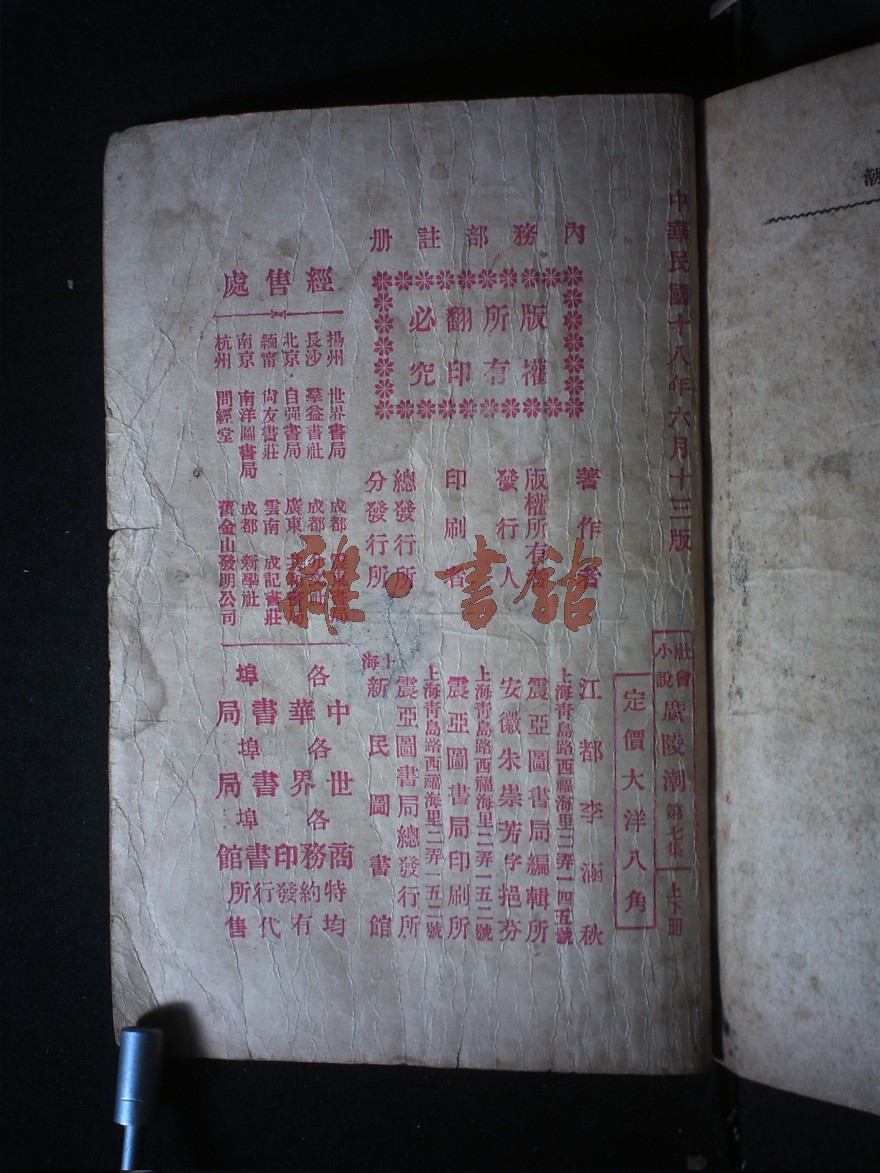 中華民國十八年六月十三版
社會小說 廣陵潮 第七集 上下冊
定價大洋八角
內務部註册
版權所有
翻印必究
著作者 江都李涵秋
上海靑島路西福海里二弄一四五號
版權所有者 震亞圖書局編輯所
發行人 安徽朱崇芳字挹芬
上海靑島路西福海里二弄一五二號
印刷者 震亞圖書局印刷所
上海靑島路西福海里二弄一五二號
總發行所 震亞圖書局總發行所
分發行所 上海新民圖書館
經售處
揚州 世界書局 成都
長沙 羣益書社 成都
北京 自强書局 廣東
緬甯 尙友書莊 雲南 成記書莊
南京 南洋圖書局 成都 新學社
杭州 問經堂 舊金山發明公司
各埠中華書局
各埠世界書局
各埠商務印書館
均有特約發行所代售
雜·書館